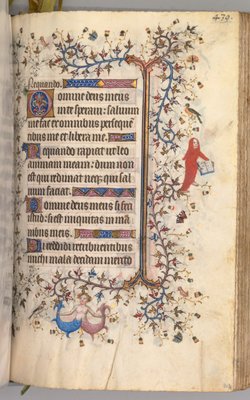 479.
Nequando.
Domine deus meus
in te speraui: saluum
me fac ex omnibus persequen
tibus me et libera me.
Nequando rapiat ut leo
animam meam: dum non
est qui redimat neq; qui sal
uum faciat.
Domine deus meus si feci
istud: si est iniquitas in ma
nibus meis.
Si reddidi retribuentibus
michi mala decidam merito